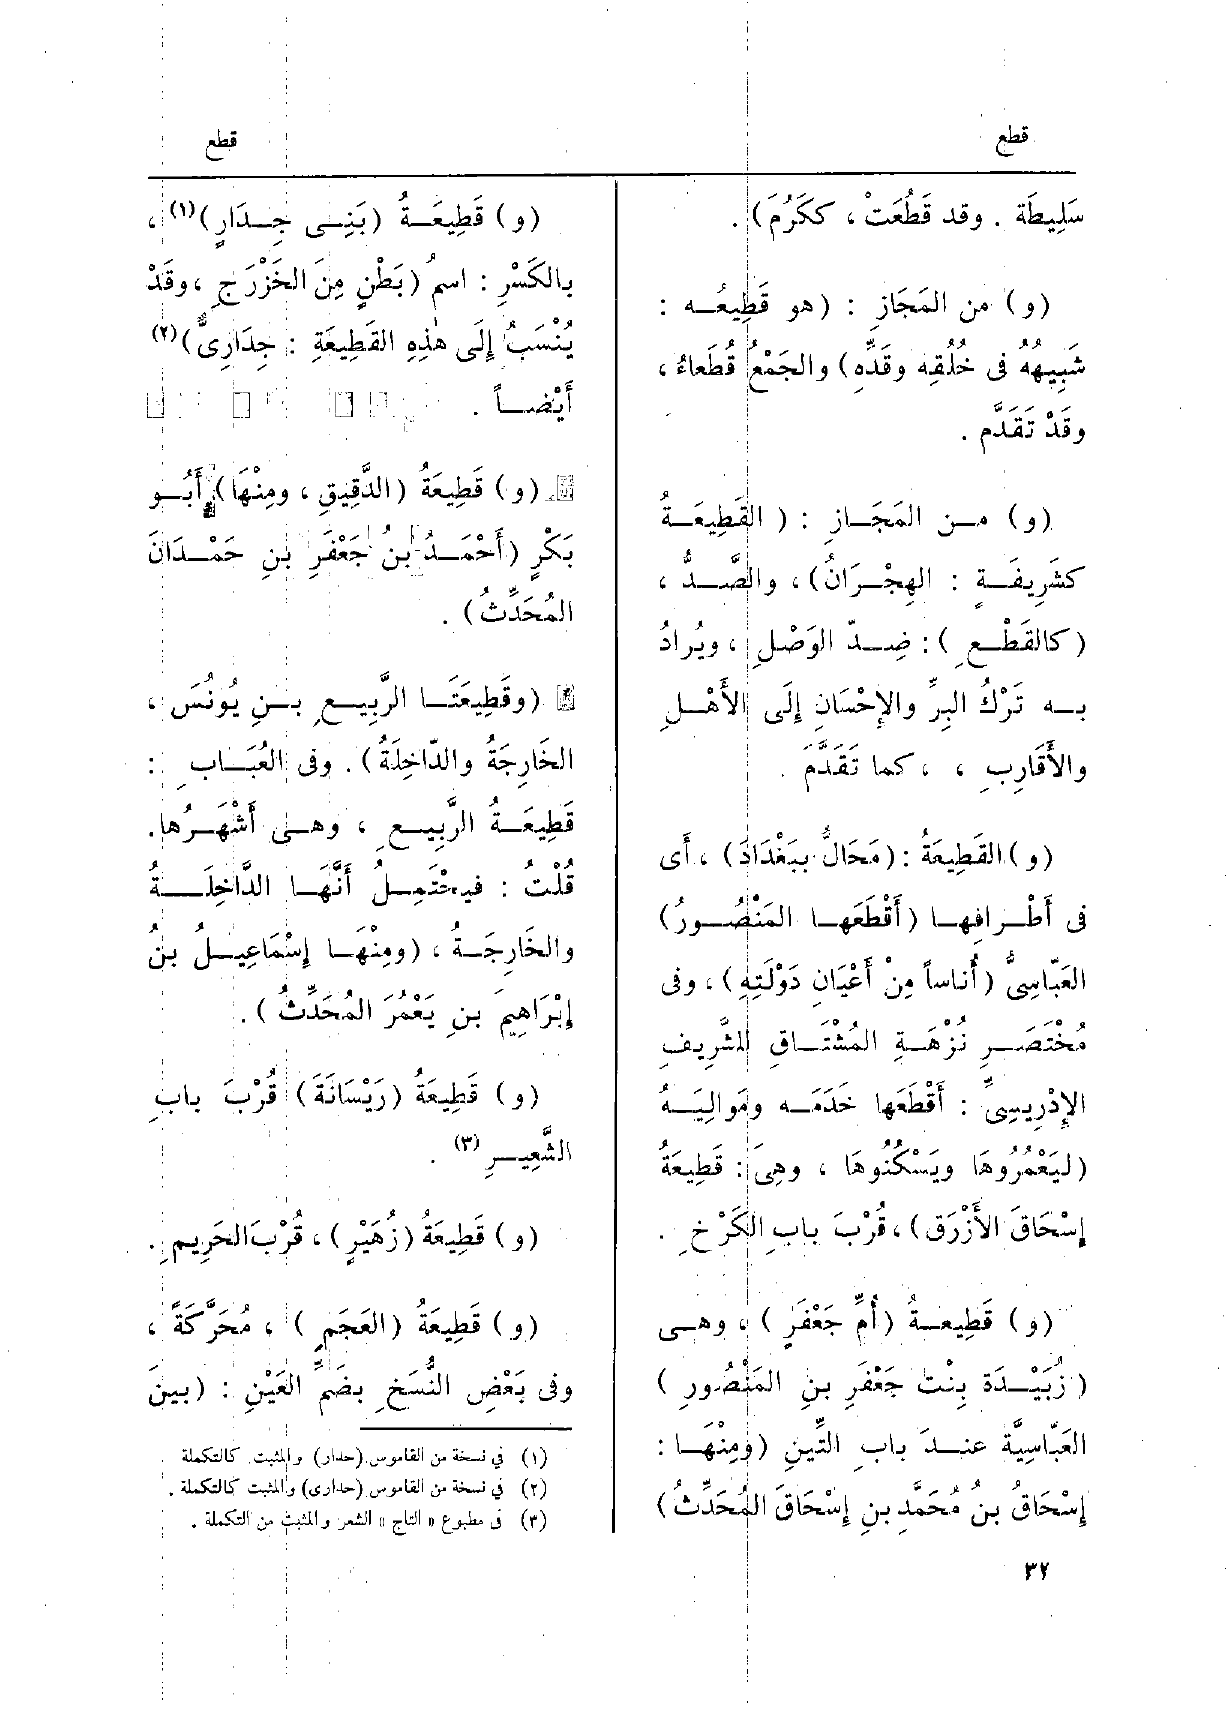 قطع
قطع
سَلِيطَة . وقد قَطُعَتْ ، ككَرُمَ) .
(و) من المَجَازِ : (هو قَطِيعُه :
شَبِيهُهُ فى خُلُقِه وقَدِّهِ) والجَمْعُ قُطَعاءُ ،
وقَدْ تَقَدَّم .
(و) مـن المَجَـازِ : ( القَطِيعَـةُ
كشَرِيفَـةٍ : الهِجْـرَانُ) ، والصَّـدُّ ،
(كالقَطْـعِ ) : ضِـدّ الوَصْلِ ، ويُرادُ
بـه تَرْكُ البِرِّ والإِحْسَانِ إِلَى الأَهْـلِ
والأَقَارِبِ ، ، كما تَقَدَّمَ .
(و) القَطِيعَةُ : (مَحَالُّ ببَغْدَادَ) ، أَى
فى أَطْـرافِهـا (أَقْطَعَهـا المَنْصُـورُ)
العَبّاسِىُّ (أُناساً مِنْ أَعْيَانِ دَوْلَتِهِ) ، وفى
مُخْتَصَـرِ نُزْهَـةِ المُشْتَـاقِ الشَّرِيفِ
الإِدْرِيسِىِّ : أَقْطَعَها خَدَمَـه ومَوالِيَـهُ
(ليَعْمُرُوهَا ويَسْكُنُوهَا ، وهِىَ : قَطِيعَةُ
إِسْحَاقَ الأَزْرَق) ، قُرْبَ بابِ الكَرْخِ .
(و) قَطِيعـةُ (أُمِّ جَعْفَرٍ ) ، وهـى
( زُبَيْـدَة بِنْت جَعْفَرِ بنِ المَنْصُورِ )
العَبّاسِيَّة عنـدَ بابِ التِّينِ (ومِنْهَـا :
إِسْحَاقُ بنُ مُحَمَّدِ بنِ إِسْحَاقَ المُحَدِّثُ)
(و) قَطِيعَـةُ (بَنِـى جِـدَارٍ )(١) ،
بالكَسْرِ : اسمُ (بَطْنٍ مِنَ الخَزْرَجِ ، وقَدْ
يُنْسَبُ إِلَى هٰذِهِ القَطِيعَةِ : جِدَارِىٌّ)(٢)
أَيْضـاً .
(و) قَطِيعَةُ (الدَّقِيقِ ، ومِنْهَا) أَبُـو
بَكْرٍ (أَحْمَـدُ بنُ جَعْفَرِ بنِ حَمْـدَانَ
المُحَدِّثُ) .
(وقَطِيعَتَـا الرَّبِيـعِ بـنِ يُونُسَ ،
الخَارِجَةُ والدّاخِلَةُ) . وفى العُبَـابِ :
قَطِيعَـةُ الرَّبِيـعِ ، وهـى أَشْهَـرُها.
قُلْتُ : فيحْتَمِـلُ أَنَّهَـا الدَّاخِلَـةُ
والخَارِجَـةُ ، (ومِنْهَـا إِسْمَاعِيـلُ بنُ
إِبْرَاهِيمَ بنِ يَعْمُرَ المُحَدِّثُ ) .
(و) قَطِيعَةُ (رَيْسَانَةَ) قُرْبَ بابِ
الشَّعِيـرِ (٣) .
(و) قَطِيعَةُ (زُهَيْرٍ ) ، قُرْبَ الحَرِيمِ .
(و) قَطِيعَةُ (العَجَمِ ) ، مُحَرَّكَةً ،
وفى بَعْضِ النُّسَخِ بضَمِّ العَيْنِ : (بينَ
(١) في نسخة من القاموس (حدار) والمثبت كالتكملة
(٢) في نسخة من القاموس (حدارى) والمثبت كالتكملة .
(٣) فى مطبوع « التاج » الشعر والمثبت من التكملة .
٣٢